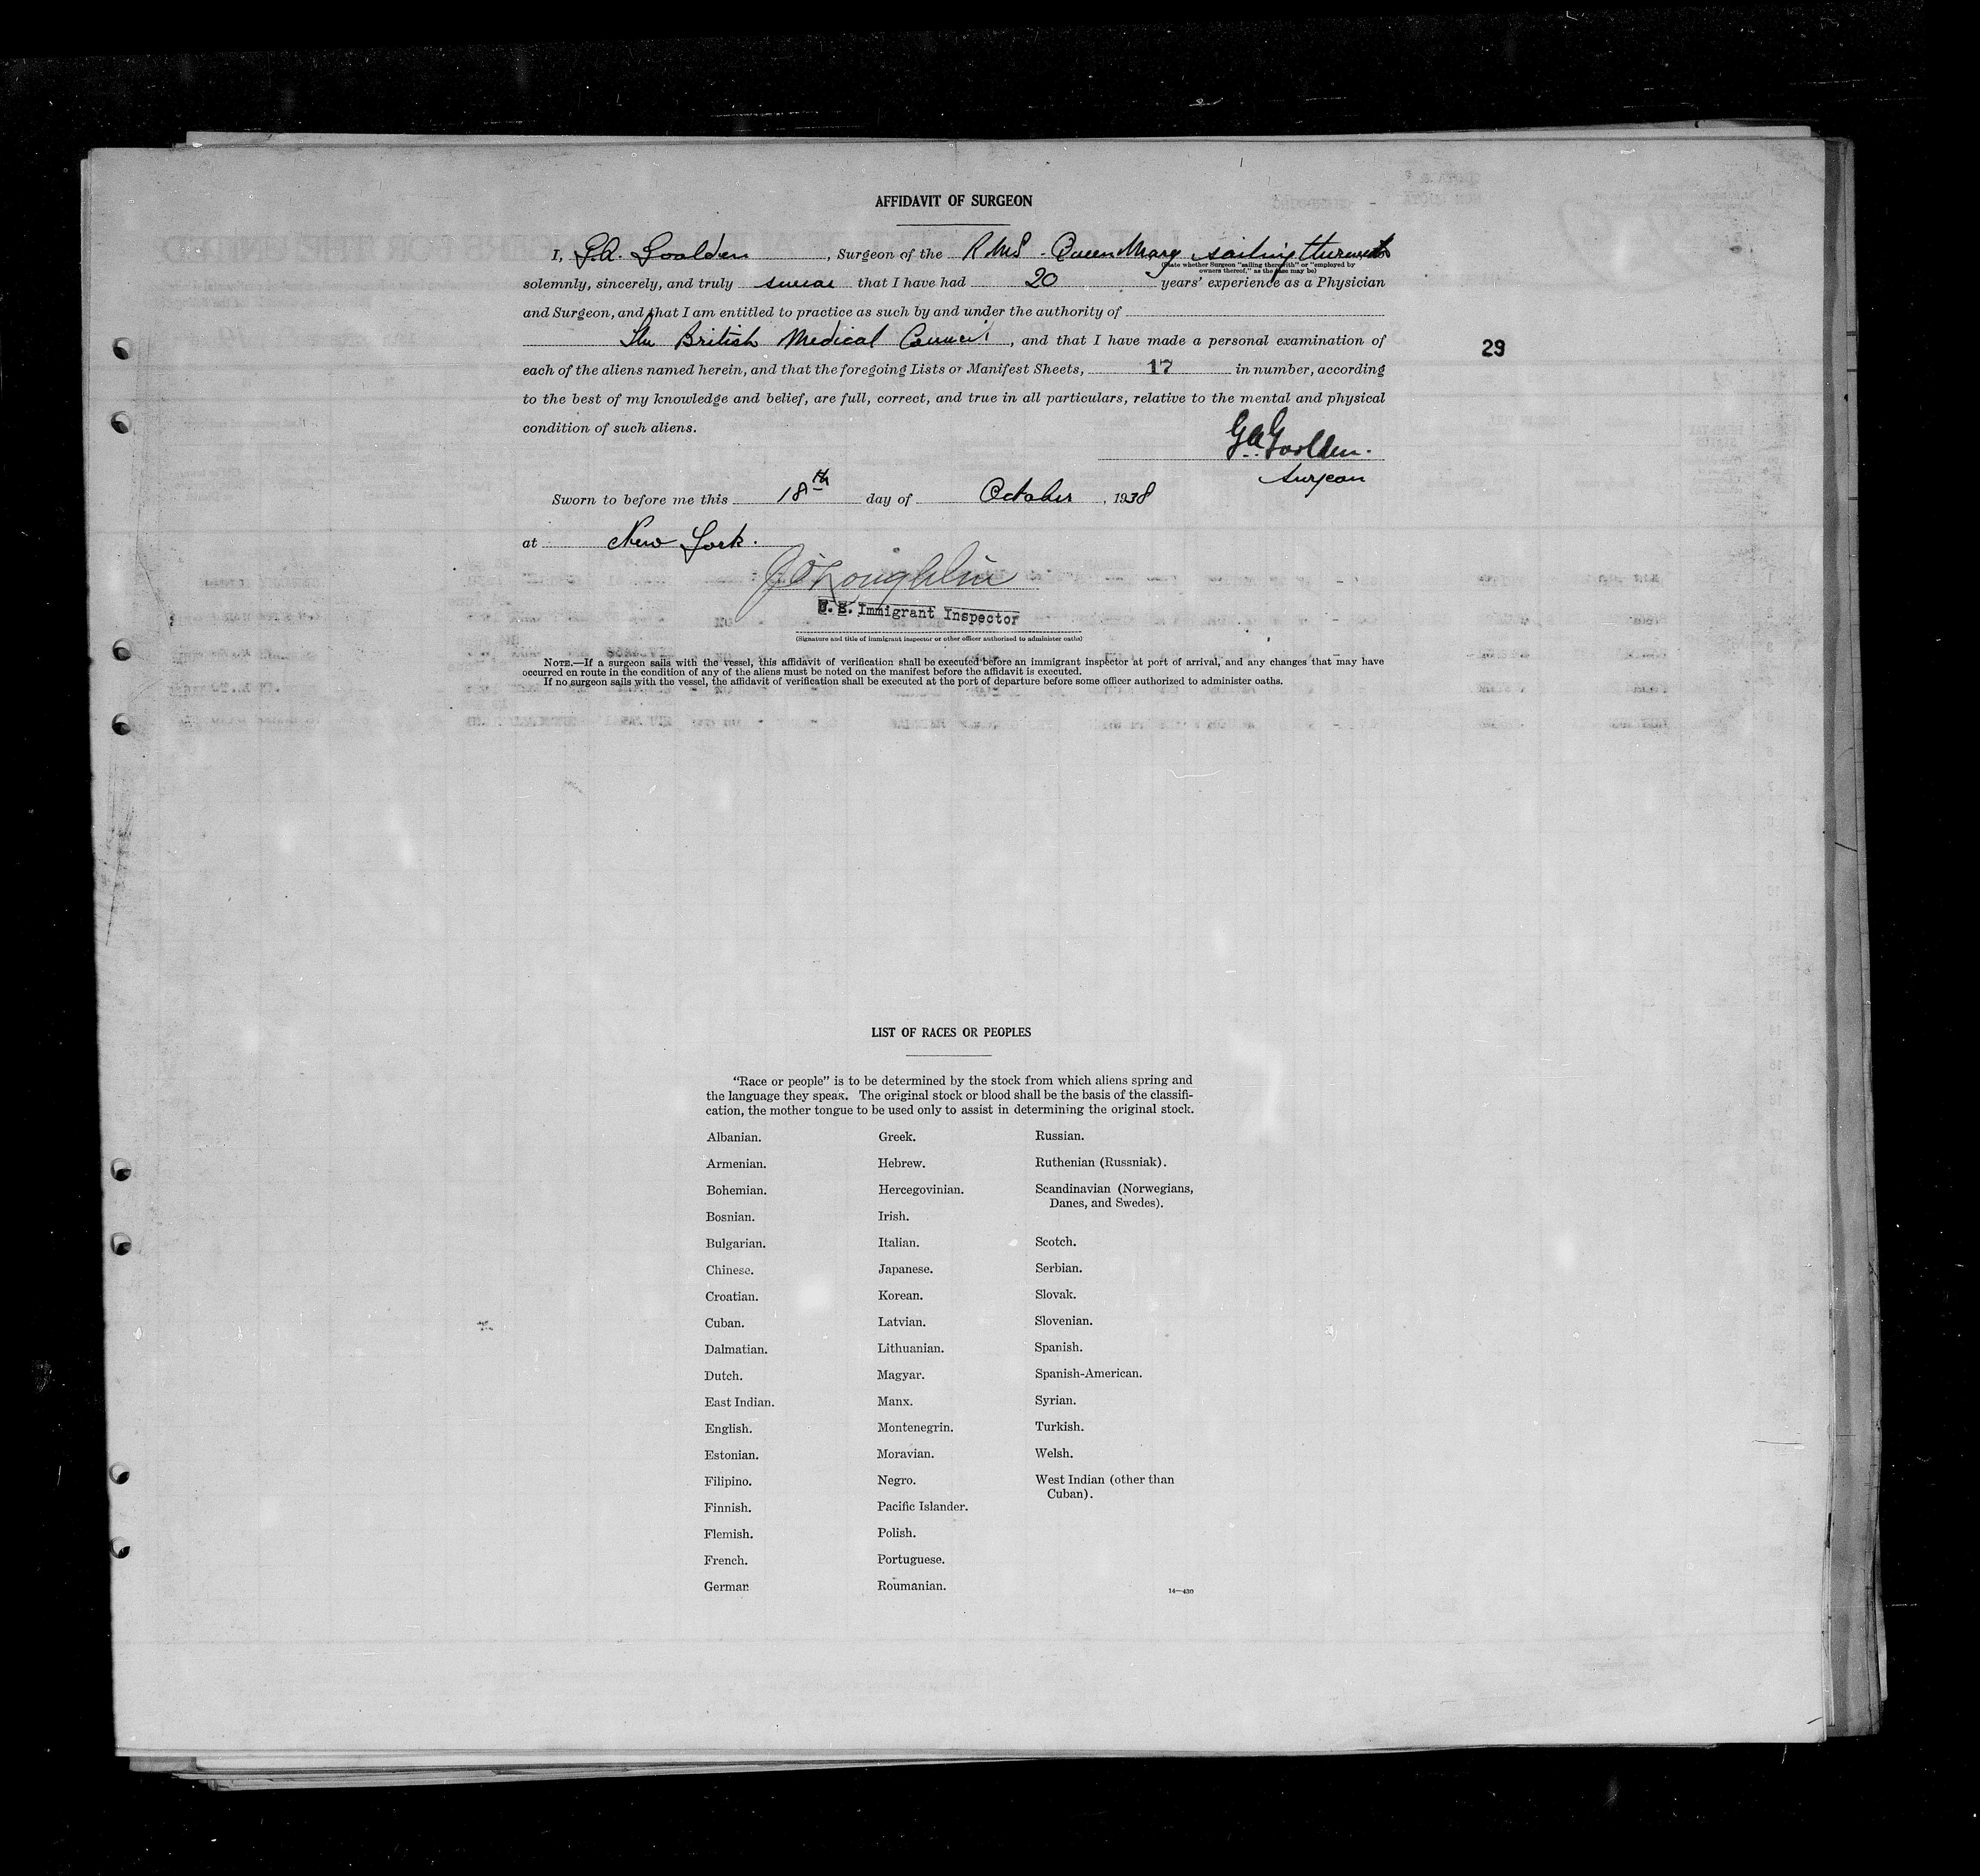 AFFIDAVIT OF SURGEON
I, G.A. Goolden, Surgeon of the R M S - Queen Mary sailing therewith
(State whether Surgeon "sailing therewith" or "employed by
owners thereof," as the case may be)
solemnly, sincerely, and truly swear that I have had 20 years' experience as a Physician
and Surgeon, and that I am entitled to practice as such by and under the authority of
The British Medical Council, and that I have made a personal examination of
29
each of the aliens named herein, and that the foregoing Lists or Manifest Sheets, 17 in number, according
to the best of my knowledge and belief, are full, correct, and true in all particulars, relative to the mental and physical
condition of such aliens.
G.A. Goolden.
Surgeon
Sworn to before me this 18th day of October, 1938
at New York.
J O'Loughlin
U. S. Immigrant Inspector
(Signature and title of immigrant inspector or other officer authorized to administer oaths)
NOTE.—If a surgeon sails with the vessel, this affidavit of verification shall be executed before an immigrant inspector at port of arrival, and any changes that may have
occurred en route in the condition of any of the aliens must be noted on the manifest before the affidavit is executed.
If no surgeon sails with the vessel, the affidavit of verification shall be executed at the port of departure before some officer authorized to administer oaths.
LIST OF RACES OR PEOPLES
"Race or people" is to be determined by the stock from which aliens spring and
the language they speak. The original stock or blood shall be the basis of the classifi-
cation, the mother tongue to be used only to assist in determining the original stock.
Albanian.
Armenian.
Bohemian.
Bosnian.
Bulgarian.
Chinese.
Croatian.
Cuban.
Dalmatian.
Dutch.
East Indian.
English.
Estonian.
Filipino.
Finnish.
Flemish.
French.
German
Greek.
Hebrew.
Hercegovinian.
Irish.
Italian.
Japanese.
Korean.
Latvian.
Lithuanian.
Magyar.
Manx.
Montenegrin.
Moravian.
Negro.
Pacific Islander.
Polish.
Portuguese.
Roumanian.
Russian.
Ruthenian (Russniak).
Scandinavian (Norwegians,
Danes, and Swedes).
Scotch.
Serbian.
Slovak.
Slovenian.
Spanish.
Spanish-American.
Syrian.
Turkish.
Welsh.
West Indian (other than
Cuban).
14—430